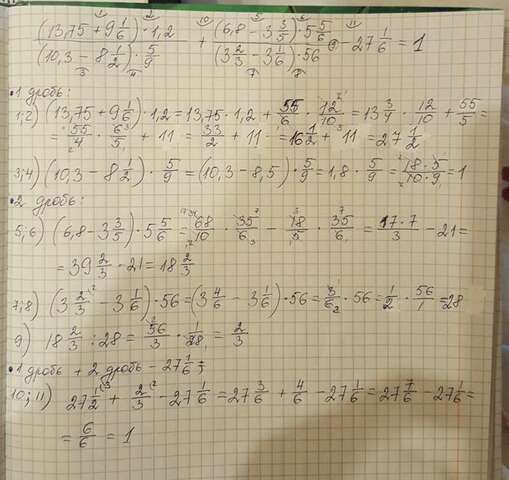 (13,75 + 9 1/6) · 1,2 / (10,3 − 8 1/2) · 5/9 + (6,8 − 3 3/5) · 5 5/6 / (3 2/3 − 3 1/6) · 56 − 27 1/6 = 1
• 1 дробь:
1;2) (13,75 + 9 1/6) · 1,2 = 13,75 · 1,2 + 55/6 · 12/10 = 13 3/4 · 12/10 + 55/5 =
= 55/4 · 6/5 + 11 = 33/2 + 11 = 16 1/2 + 11 = 27 1/2
3;4) (10,3 − 8 1/2) · 5/9 = (10,3 − 8,5) · 5/9 = 1,8 · 5/9 = 18 · 5/10 · 9 = 1
• 2 дробь:
5;6) (6,8 − 3 3/5) · 5 5/6 = 68/10 · 35/6 − 18/5 · 35/6 = 17 · 7/3 − 21 =
= 39 2/3 − 21 = 18 2/3
7;8) (3 2/3 − 3 1/6) · 56 = (3 4/6 − 3 1/6) · 56 = 3/6 · 56 = 1/2 · 56/1 = 28
9) 18 2/3 : 28 = 56/3 · 1/28 = 2/3
• 1 дробь + 2 дробь − 27 1/6 :
10;11) 27 1/2 + 2/3 − 27 1/6 = 27 3/6 + 4/6 − 27 1/6 = 27 7/6 − 27 1/6 =
= 6/6 = 1